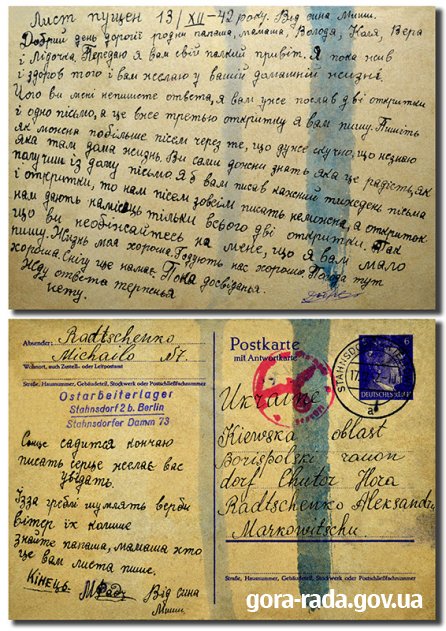 Лист пущен 13/XII-42 року. Від сина Миши.
Добрий день дорогії родни папаша, мамаша, Володя, Коля, Вера
і Лідочка. Передаю я вам свій палкий привіт. Я пока жив
і здоров того і вам желаю у вашій домашній жизні.
Чого ви мені непишите ответа, я вам уже послав дві открытки
і одно письмо, а це вже третью открытку я вам пишу. Пишіть
як можна побільше писем через те, що дуже скучно, що незнаю
яка там дома жизнь. Ви сами дожни знать яка це радість, як
получиш із дому письмо. Я б вам писав кажний тиждень письма
і открытки, то нам писем зовсім писать неможна, а открыток
нам дають на місяць тільки всього дві открытки. Так
що ви необіжайтесь на мене, що я вам мало
пишу. Жизнь моя хороша. Годують нас хорошо. Погода тут
хороша. Снігу ще немає. Пока досвіданья.
Жду ответа терпенья
нету.
Absender: Radtschenko
Michailo N7.
Wohnort, auch Zustell- oder Leitpostamt
Straße, Hausnummer, Gebäudeteil, Stockwerk oder Postschließfachnummer
Ostarbeiterlager
Stahnsdorf 2 b. Berlin
Stahnsdorfer Damm 73
Сонце садится кончаю
писать серце желає вас
увідать.
Ізза греблі шумлять верби
вітер їх колише
знайте папаша, мамаша хто
це вам листа пише.
Кінець. Від сина
Миши.
Postkarte
mit Antwortkarte
STAHNSDORF
17
a
6
DEUTSCHES REICH
Ukraine
Kiewska oblast
Borispolski raion
dorf Chutor Hora
Radtschenko Aleksandru
Markowitschu
Straße, Hausnummer, Gebäudeteil, Stockwerk oder Postschließfachnummer
gora-rada.gov.ua